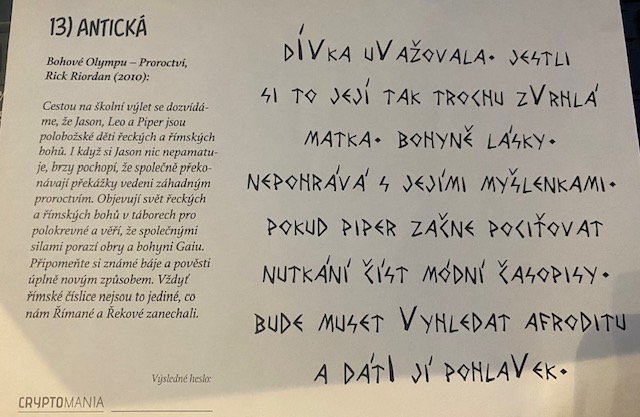 13) ANTICKÁ
Bohové Olympu – Proroctví,
Rick Riordan (2010):
Cestou na školní výlet se dozvídá-
me, že Jason, Leo a Piper jsou
polobožské děti řeckých a římských
bohů. I když si Jason nic nepamatu-
je, brzy pochopí, že společně překo-
návají překážky vedeni záhadným
proroctvím. Objevují svět řeckých
a římských bohů v táborech pro
polokrevné a věří, že společnými
silami porazí obry a bohyni Gaiu.
Připomeňte si známé báje a pověsti
úplně novým způsobem. Vždyť
římské číslice nejsou to jediné, co
nám Římané a Řekové zanechali.
Výsledné heslo:
CRYPTOMANIA
DÍVKA UVAŽOVALA• JESTLI
SI TO JEJÍ TAK TROCHU ZVRHLÁ
MATKA• BOHYNĚ LÁSKY•
NEPOHRÁVÁ S JEJÍMI MYŠLENKAMI•
POKUD PIPER ZAČNE POCIŤOVAT
NUTKÁNÍ ČÍST MÓDNÍ ČASOPISY•
BUDE MUSET VYHLEDAT AFRODITU
A DÁTI JÍ POHLAVEK•